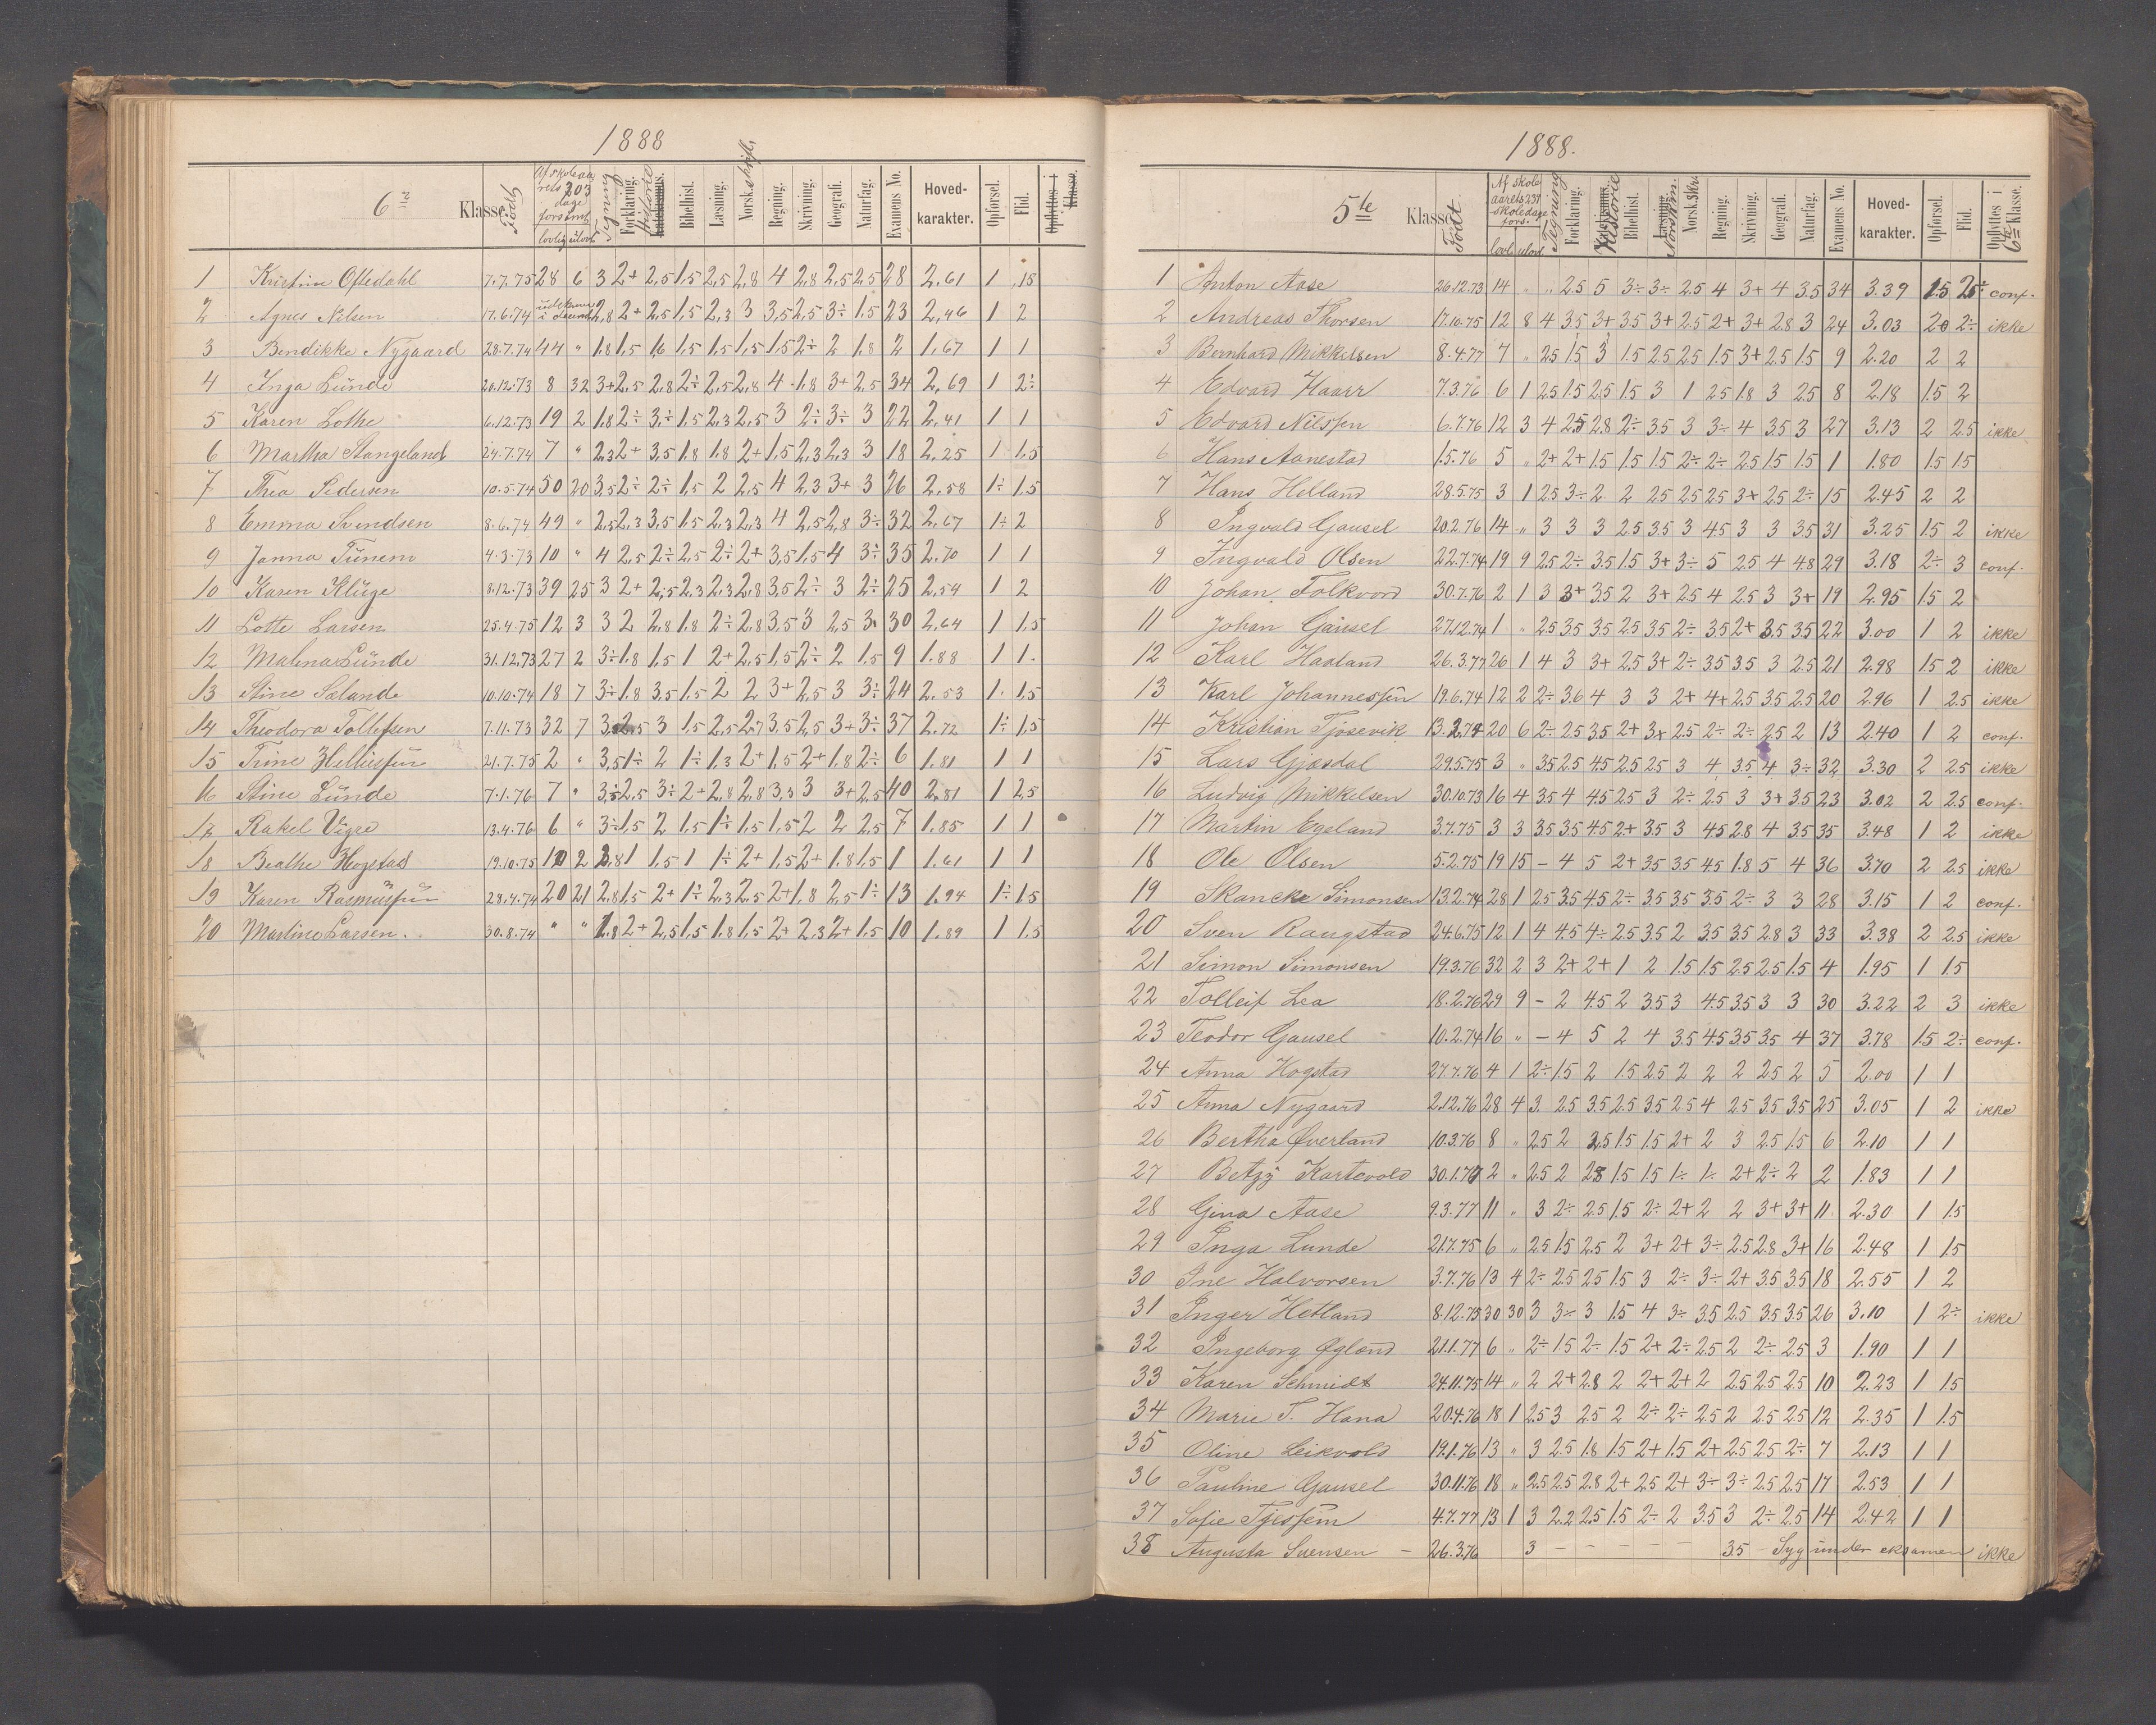 1888
6te Klasse. Født Af skoleaarets 203 dage forsømt lovlig ulovl Tegning Forklaring. Historie Katekismus. Bibelhist. Læsning. Norsk. skriftl. Regning. Skrivning. Geografi. Naturfag. Examens No. Hoved-karakter. Opførsel. Flid. Opflyttes i Klasse.
1 Kristine Oftedahl 7.7.75 28 6 3 2+ 2,5 1,5 2,5 2,8 4 2,8 2,5 2,5 28 2,61 1 1,5
2 Agnes Nilsen 17.6.74 2,8 2+ 2,5 1,5 2,3 3 3,5 2,5 3÷ 1,5 23 2,46 1 2
3 Bendikke Nygaard 28.7.74 44 " 1,8 1,5 1,6 1,5 1,5 1,5 1,5 2÷ 2 1,8 2 1,67 1 1
4 Inga Lunde 20.12.73 8 32 3+ 2,5 2,8 2÷ 2,5 2,8 4 1,8 3+ 2,5 34 2,69 1 2÷
5 Karen Lothe 6.12.73 19 2 1,8 2÷ 3÷ 1,5 2,3 2,5 3 2÷ 3÷ 3 22 2,41 1 1
6 Martha Stangeland 24.7.74 7 " 2,3 2+ 3,5 1,8 1,8 2+ 1,5 2,3 2,3 3 18 2,25 1 1,5
7 Thea Pedersen 10.5.74 50 20 3,5 2÷ 2÷ 1,5 2 2,5 4 2,3 3+ 3 26 2,58 1÷ 1,5
8 Emma Svendsen 8.6.74 49 " 2,3 2,3 3,5 1,5 2,3 2,3 4 2,5 2,8 3÷ 32 2,67 1÷ 2
9 Janna Tunem 4.3.73 10 " 4 2,5 2÷ 2,5 2÷ 2+ 3,5 1,5 4 3÷ 35 2,70 1 1
10 Karen Kluge 8.12.73 39 25 3 2+ 2,5 2,3 2,3 2,8 3,5 2÷ 3 2÷ 25 2,54 1 2
11 Lotte Larsen 25.4.75 12 3 3 2 2,8 1,8 2÷ 2,8 3,5 3 2,5 3 30 2,64 1 1,5
12 Malena Lunde 31.12.73 27 2 3÷ 1,8 1,5 1 2+ 2,5 1,5 2÷ 2 1,5 9 1.88 1 1.
13 Stine Salande 10.10.74 18 7 3÷ 1.8 3,5 1,5 2 2 3+ 2,5 3 3÷ 24 2.53 1 1,5
14 Theodora Tollefsen 7.11.73 32 7 3 2,5 3 1,5 2,5 2,7 3,5 2,5 3+ 3÷ 37 2.72 1÷ 1,5
15 Trine Helliesen 21.7.75 2 " 3,5 1÷ 2 1÷ 1,3 2+ 1,5 2+ 1.8 2÷ 6 1.81 1 1
16 Stine Lunde 7.1.76 7 " 3,5 2,5 3÷ 2+ 2,8 2,8 3,3 3 3+ 2,5 40 2,81 1 2,5
17 Rakel Vigre 13.4.76 6 " 3÷ 1,5 2 1,5 1÷ 1,5 1,5 2 2 2,5 7 1.85 1 1
18 Beathe Hogstad 19.10.75 12 2 2,8 1 1,5 1 1÷ 2+ 1,5 2+ 1.8 1,5 1 1.61 1 1
19 Karen Rasmussen 28.4.74 20 21 2,8 1,5 2+ 1÷ 2,3 2,5 2+ 1,8 2,5 1÷ 13 1.94 1÷ 1.5
20 Martine Larsen. 30.8.74 " " 1.8 2+ 2,5 1,5 1.8 1,5 2+ 2,3 2+ 1,5 10 1.89 1 1.5
1888.
5te Klasse. Født Af skoleaarets 231 skoledage fors. lovl. ulovl. Tegning Forklaring. Katekismus. Historie Bibelhist. Læsning. Norsk Norsk. Skr. Regning. Skrivning. Geografi. Naturfag. Examens No. Hoved-karakter. Opførsel. Flid. Opflyttes i 6te Klasse.
1 Anton Aase 26.12.73 14 " " 2.5 5 3÷ 3÷ 2.5 4 3+ 4 3.5 34 3.39 1.5 2.5÷ conf.
2 Andreas Thorsen 17.10.75 12 8 4 3.5 3+ 3.5 3+ 2.5 2+ 3+ 2.8 3 24 3.03 2 2÷ ikke
3 Bernhard Mikkelsen 8.4.77 7 " 2.5 1.5 3 1.5 2.5 2.5 1.5 3+ 2.5 1.5 9 2.20 2 2
4 Edvard Haarr 7.3.76 6 1 2.5 1.5 2.5 1.5 3 1 2.5 1.8 3 2.5 8 2.18 1.5 2
5 Edvard Nilssen 6.7.76 12 3 4 2.5 2.8 2÷ 3.5 3 3÷ 4 3.5 3 27 3.13 2 2.5 ikke
6 Hans Aanestad 1.5.76 5 " 2+ 2+ 1.5 1.5 1.5 2÷ 2÷ 2.5 1.5 1.5 1 1.80 1.5 1.5
7 Hans Helland 28.5.75 3 1 2.5 3÷ 2 2 2.5 2.5 2.5 3+ 2.5 2÷ 15 2.45 2 2
8 Ingvald Gausel 20.2.76 14 " 3 3 3 2.5 3.5 3 4.5 3 3 3.5 31 3.25 1.5 2 ikke
9 Ingvald Olsen 22.7.74 19 9 2.5 2÷ 3.5 1.5 3+ 3÷ 5 2.5 4 4.8 29 3.18 2÷ 3 conf.
10 Johan Folkvord 30.7.76 2 1 3 3+ 3.5 2 3+ 2.5 4 2.5 3 3+ 19 2.95 1.5 2
11 Johan Gausel 27.12.74 1 " 2.5 3.5 3.5 2.5 3.5 2÷ 3.5 2+ 3.5 3.5 22 3.00 1 2 ikke
12 Karl Haaland 26.3.77 26 1 4 3 3+ 2.5 3+ 2÷ 3.5 3.5 3 2.5 21 2.98 1.5 2 ikke
13 Karl Johannessen 19.6.74 12 2 2÷ 3.6 4 3 3 2+ 4+ 2.5 3.5 2.5 20 2.96 1 2.5 ikke
14 Kristian Tjosevik 13.2.74 20 6 2÷ 2.5 3.5 2+ 3+ 2.5 2÷ 2÷ 2.5 2 13 2.40 1 2 conf.
15 Lars Gjæsdal 29.5.75 3 " 3.5 2.5 4.5 2.5 2.5 3 4 3.5 4 3÷ 32 3.30 2 2.5 ikke
16 Ludvig Mikkelsen 30.10.73 16 4 3.5 4 4.5 2.5 3 2÷ 2.5 3 3+ 3.5 23 3.02 2 2.5 conf.
17 Martin Egeland 3.7.75 3 3 3.5 3.5 4.5 2+ 3.5 3 4.5 2.8 4 3.5 35 3.48 1 2 ikke
18 Ole Olsen 5.2.75 19 15 – 4 5 2+ 3.5 3.5 4.5 1.8 5 4 36 3.70 2 2.5 ikke
19 Skancke Simonsen 13.2.74 28 1 2.5 3.5 4.5 2÷ 3.5 3.5 3.5 2÷ 3 3 28 3.15 1 2 conf.
20 Sven Raugstad 24.6.75 12 1 4 4.5 4÷ 2.5 3.5 2 3.5 3.5 2.8 3 33 3.38 2 2.5 ikke
21 Simon Simonsen 19.3.76 32 2 3 2+ 2+ 1 2 1.5 1.5 2.5 2.5 1.5 4 1.95 1 1.5
22 Tolleif Lea 18.2.76 29 9 – 2 4.5 2 3.5 3 4.5 3.5 3 3 30 3.22 2 3 ikke
23 Teodor Gausel 10.2.74 16 " – 4 5 2 4 3.5 4.5 3.5 3.5 4 37 3.78 1.5 2÷ conf.
24 Anna Hogstad 27.7.76 4 1 2÷ 1.5 2 1.5 2.5 2 2 2 2.5 2 5 2.00 1 1
25 Anna Nygaard 2.12.76 28 4 3. 2.5 3.5 2.5 3.5 2.5 4 2.5 3.5 3.5 25 3.05 1 2 ikke
26 Bertha Øverland 10.3.76 8 " 2.5 2 2.5 1.5 1.5 2+ 2 3 2.5 1.5 6 2.10 1 1
27 Betzy Kartevold 30.1.77 2 " 2.5 2 2.8 1.5 1.5 1÷ 1÷ 2+ 2÷ 2 2 1.83 1 1
28 Gina Aase 9.3.77 11 " 3 2÷ 2.5 1.5 2÷ 2+ 2 2 3+ 3+ 11 2.30 1 1.5
29 Inga Lunde 21.7.75 6 " 2.5 1.5 2.5 2 3+ 2+ 3÷ 2.5 2.8 3+ 16 2.48 1 1.5
30 Ine Halvorsen 3.7.76 13 4 2÷ 2.5 2.5 1.5 3 2÷ 3÷ 2+ 3.5 3.5 18 2.55 1 2
31 Inger Hetland 8.12.75 30 30 3 3÷ 3 1.5 4 3÷ 3.5 2.5 3.5 3.5 26 3.10 1 2÷ ikke
32 Ingeborg Øglænd 21.1.77 6 " 2÷ 1.5 2÷ 1.5 2+ 2÷ 2.5 2 2÷ 2.5 3 1.90 1 1
33 Karen Schmidt 24.11.75 14 " 2 2+ 2.8 2 2+ 2+ 2 2.5 2.5 2.5 10 2.23 1 1.5
34 Marie T. Hana 20.4.76 18 1 2.5 3 2.5 2 2÷ 2÷ 2.5 2 2.5 2.5 12 2.35 1 1.5
35 Oline Leikvold 19.1.76 13 " 3 2.5 1.8 1.5 2+ 1.5 2+ 2.5 2.5 2÷ 7 2.13 1 1
36 Pauline Gausel 30.11.76 18 " 2.5 2.5 2.8 2+ 2.5 2+ 3÷ 3÷ 2.5 2.5 17 2.53 1 1
37 Sofie Tjessem 4.7.77 13 1 3 2.2 2.5 1.5 2÷ 2 3.5 3 2÷ 2.5 14 2.42 1 1
38 Augusta Svensen – 26.3.76 3 – – – – – – 3.5 Syg under eksamen ikke